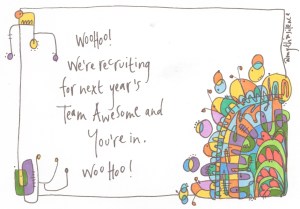 WooHoo!
We're recruiting
for next year's
Team Awesome and
You're in.
WooHoo!